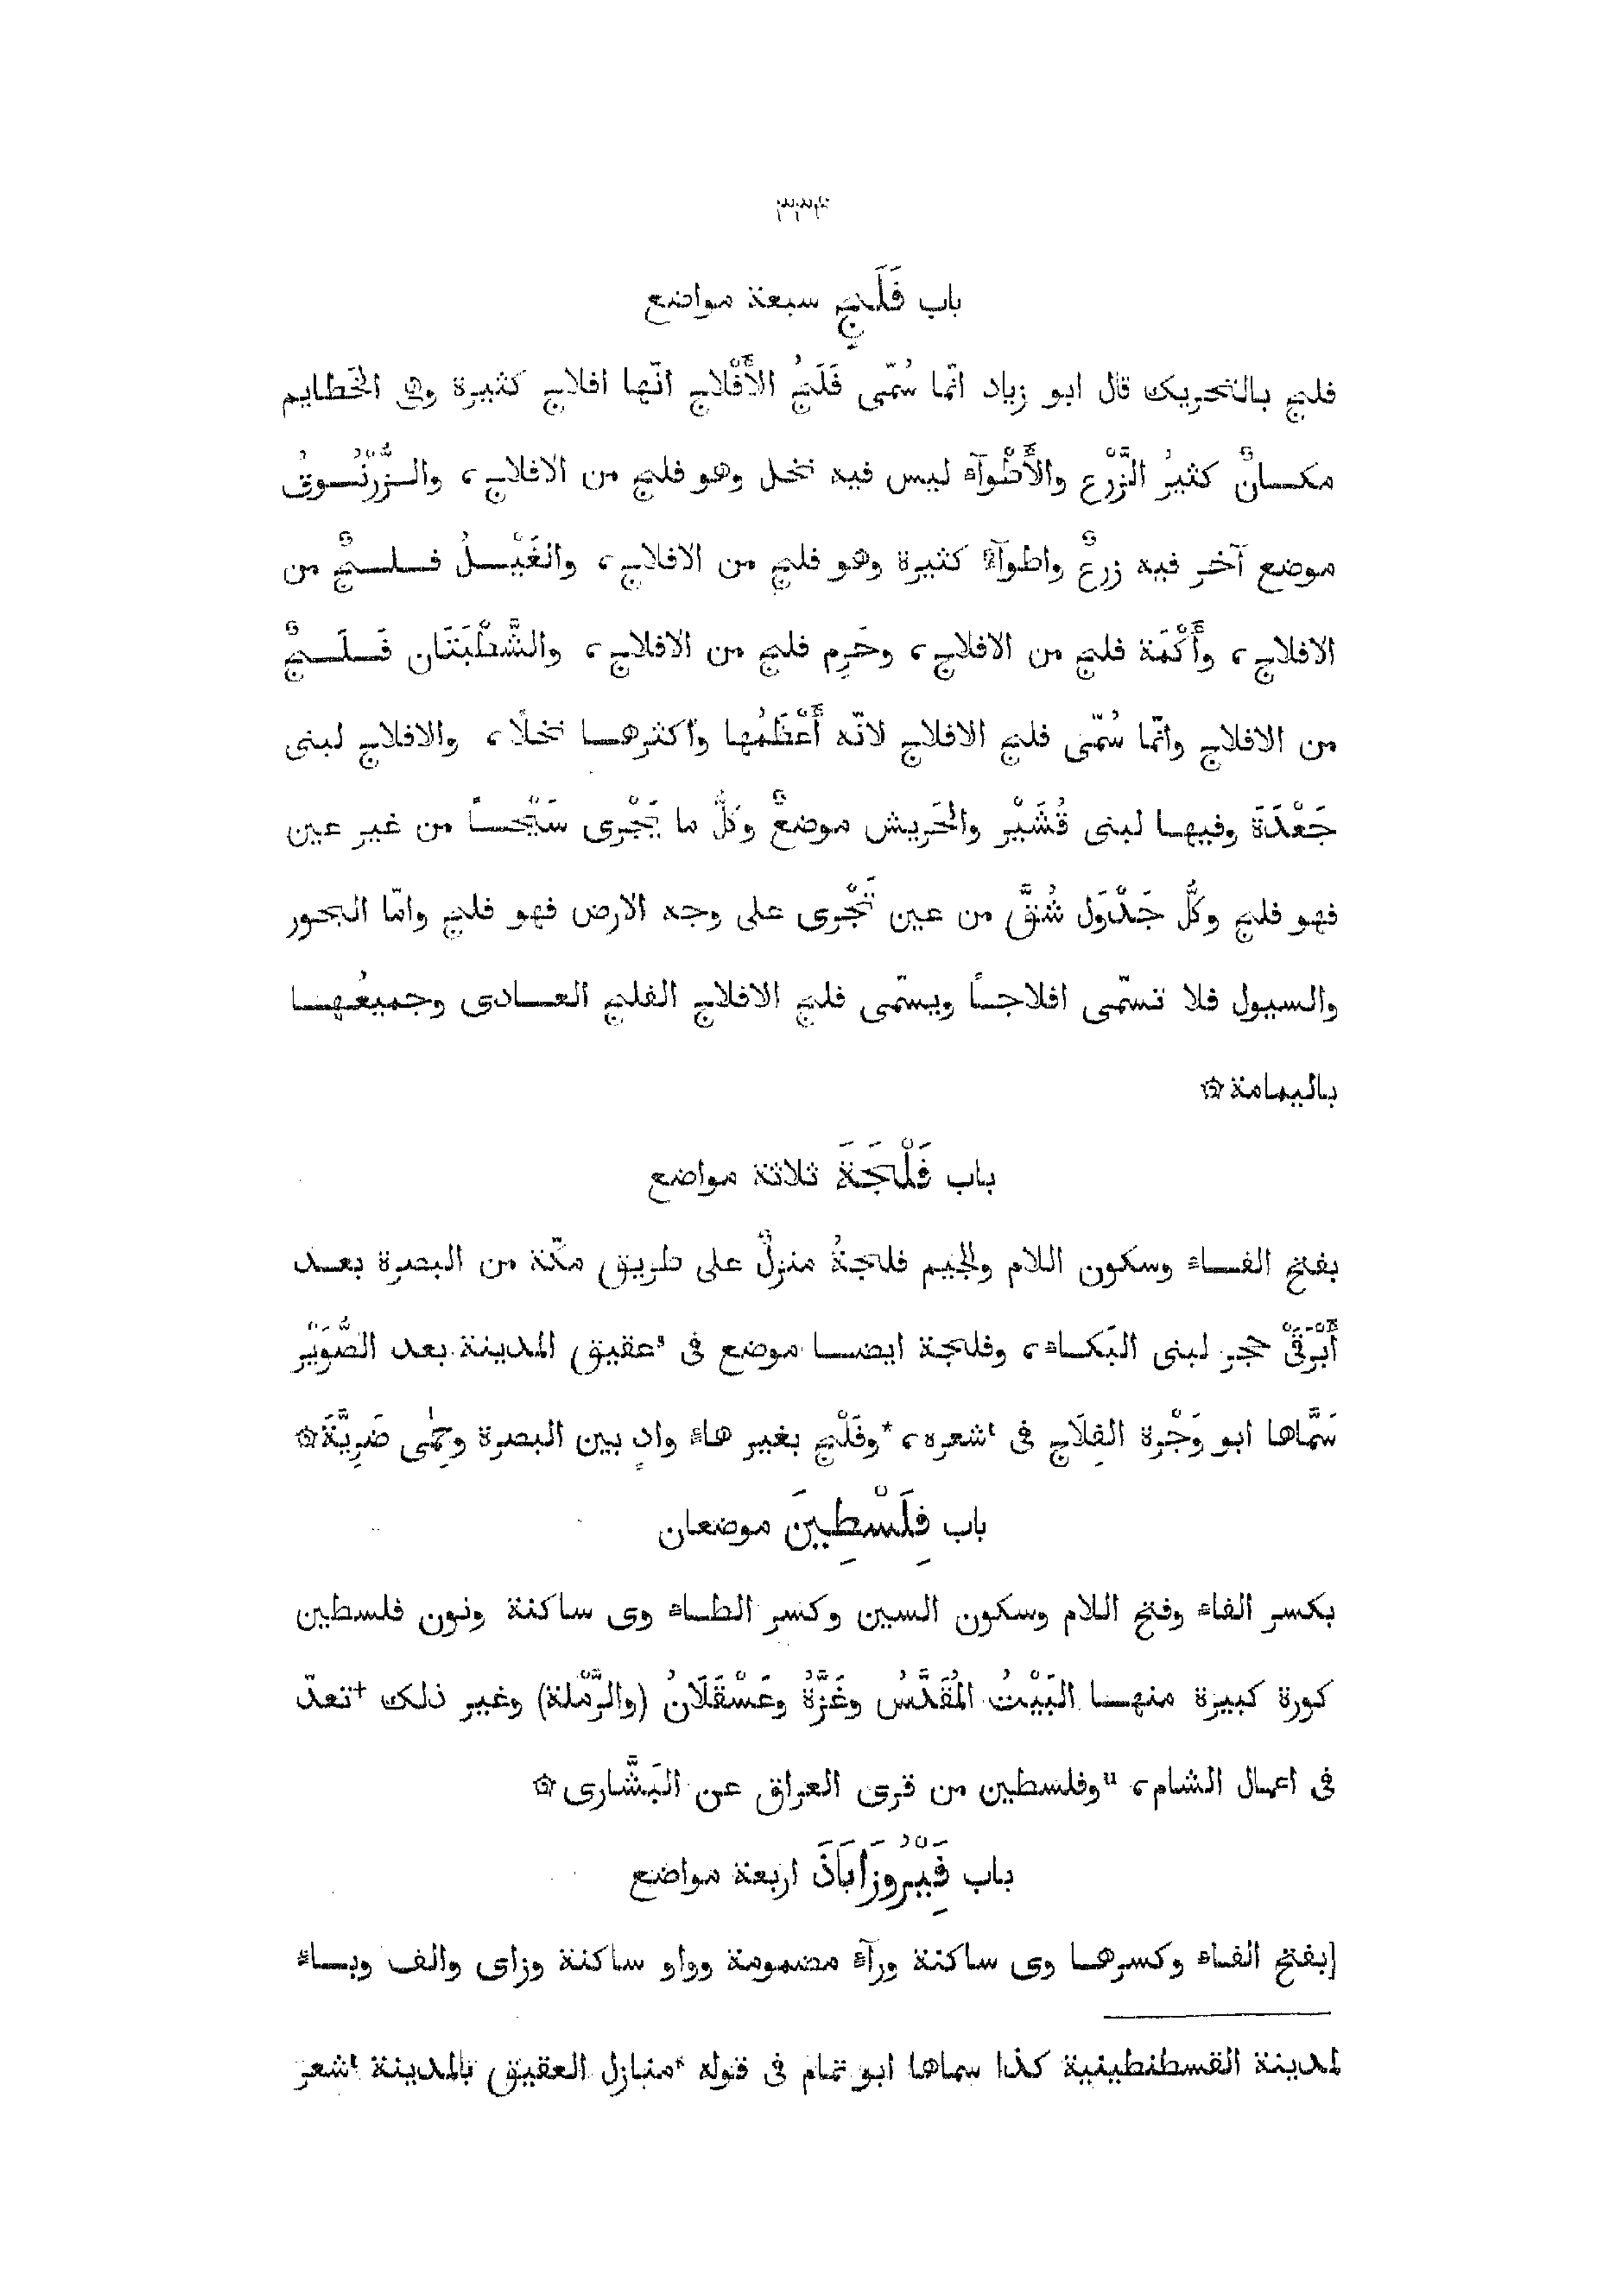 ٣٣۴
باب فَلَجٍ سبعة مواضع
فلج بالتحريك قال ابو زياد انّما سُمّى فَلَجُ الأَفْلاج انّها افلاج كثيرة وهى الخَطايم
مكانٌ كثيرُ الزَّرْع والأَطْوآء ليس فيه نخل وهو فلج من الافلاج، والزُّرْنُوقُ
موضع آخر فيه زرعٌ واطوآءٌ كثيرة وهو فلج من الافلاج، والغَيْلُ فلجٌ من
الافلاج، وأَكْمَة فلج من الافلاج، وحَرِم فلج من الافلاج، والشَّطْبَتَان فَلَجٌ
من الافلاج وانّما سُمّى فلج الافلاج لانّه أَعْظَمُها واكثرها نخلًا، والافلاج لبنى
جَعْدَةَ وفيها لبنى قُشَيْر والحَريش موضعٌ وكلُّ ما يَجْرى سَيْحًا من غير عين
فهو فلج وكلُّ جَدْوَل شُقَّ من عين تَجْرى على وجه الارض فهو فلج وامّا البحور
والسيول فلا تسمّى افلاجًا ويسمّى فلج الافلاج الفلج العادى وجميعُها
باليمامة ۞
باب فَلْجَةَ ثلاثة مواضع
بفتح الفاء وسكون اللام والجيم فلجةُ منزلٌ على طريق مكّة من البصرة بعد
أَبْرَقَىْ حجر لبنى البَكاء، وفلجة ايضا موضع فى ؟عقيق المدينة بعد الصُّوَيْر
سَمَّاها ابو وَجْزة الفِلَاج فى ؟شعره، *وفَلْج بغير هاء وادٍ بين البصرة وحِمٰى ضَرِيَّةَ ۞
باب فِلَسْطِينَ موضعان
بكسر الفاء وفتح اللام وسكون السين وكسر الطاء وى ساكنة ونون فلسطين
كورة كبيرة منها البَيْتُ المُقَدَّسُ وغَزَّةُ وعَسْقَلَانُ (والرَّمْلة) وغير ذلك †تعدّ
فى اعمال الشام، "وفلسطين من قرى العراق عن البَشَّارى ۞
باب فَِيْرُوزَابَاذَ اربعة مواضع
[بفتح الفاء وكسرها وى ساكنة ورآء مضمومة وواو ساكنة وزاى والف وباء
لمدينة القسطنطينية كذا سماها ابو تمام فى قوله *منازل العقيق بالمدينة ؟شعر